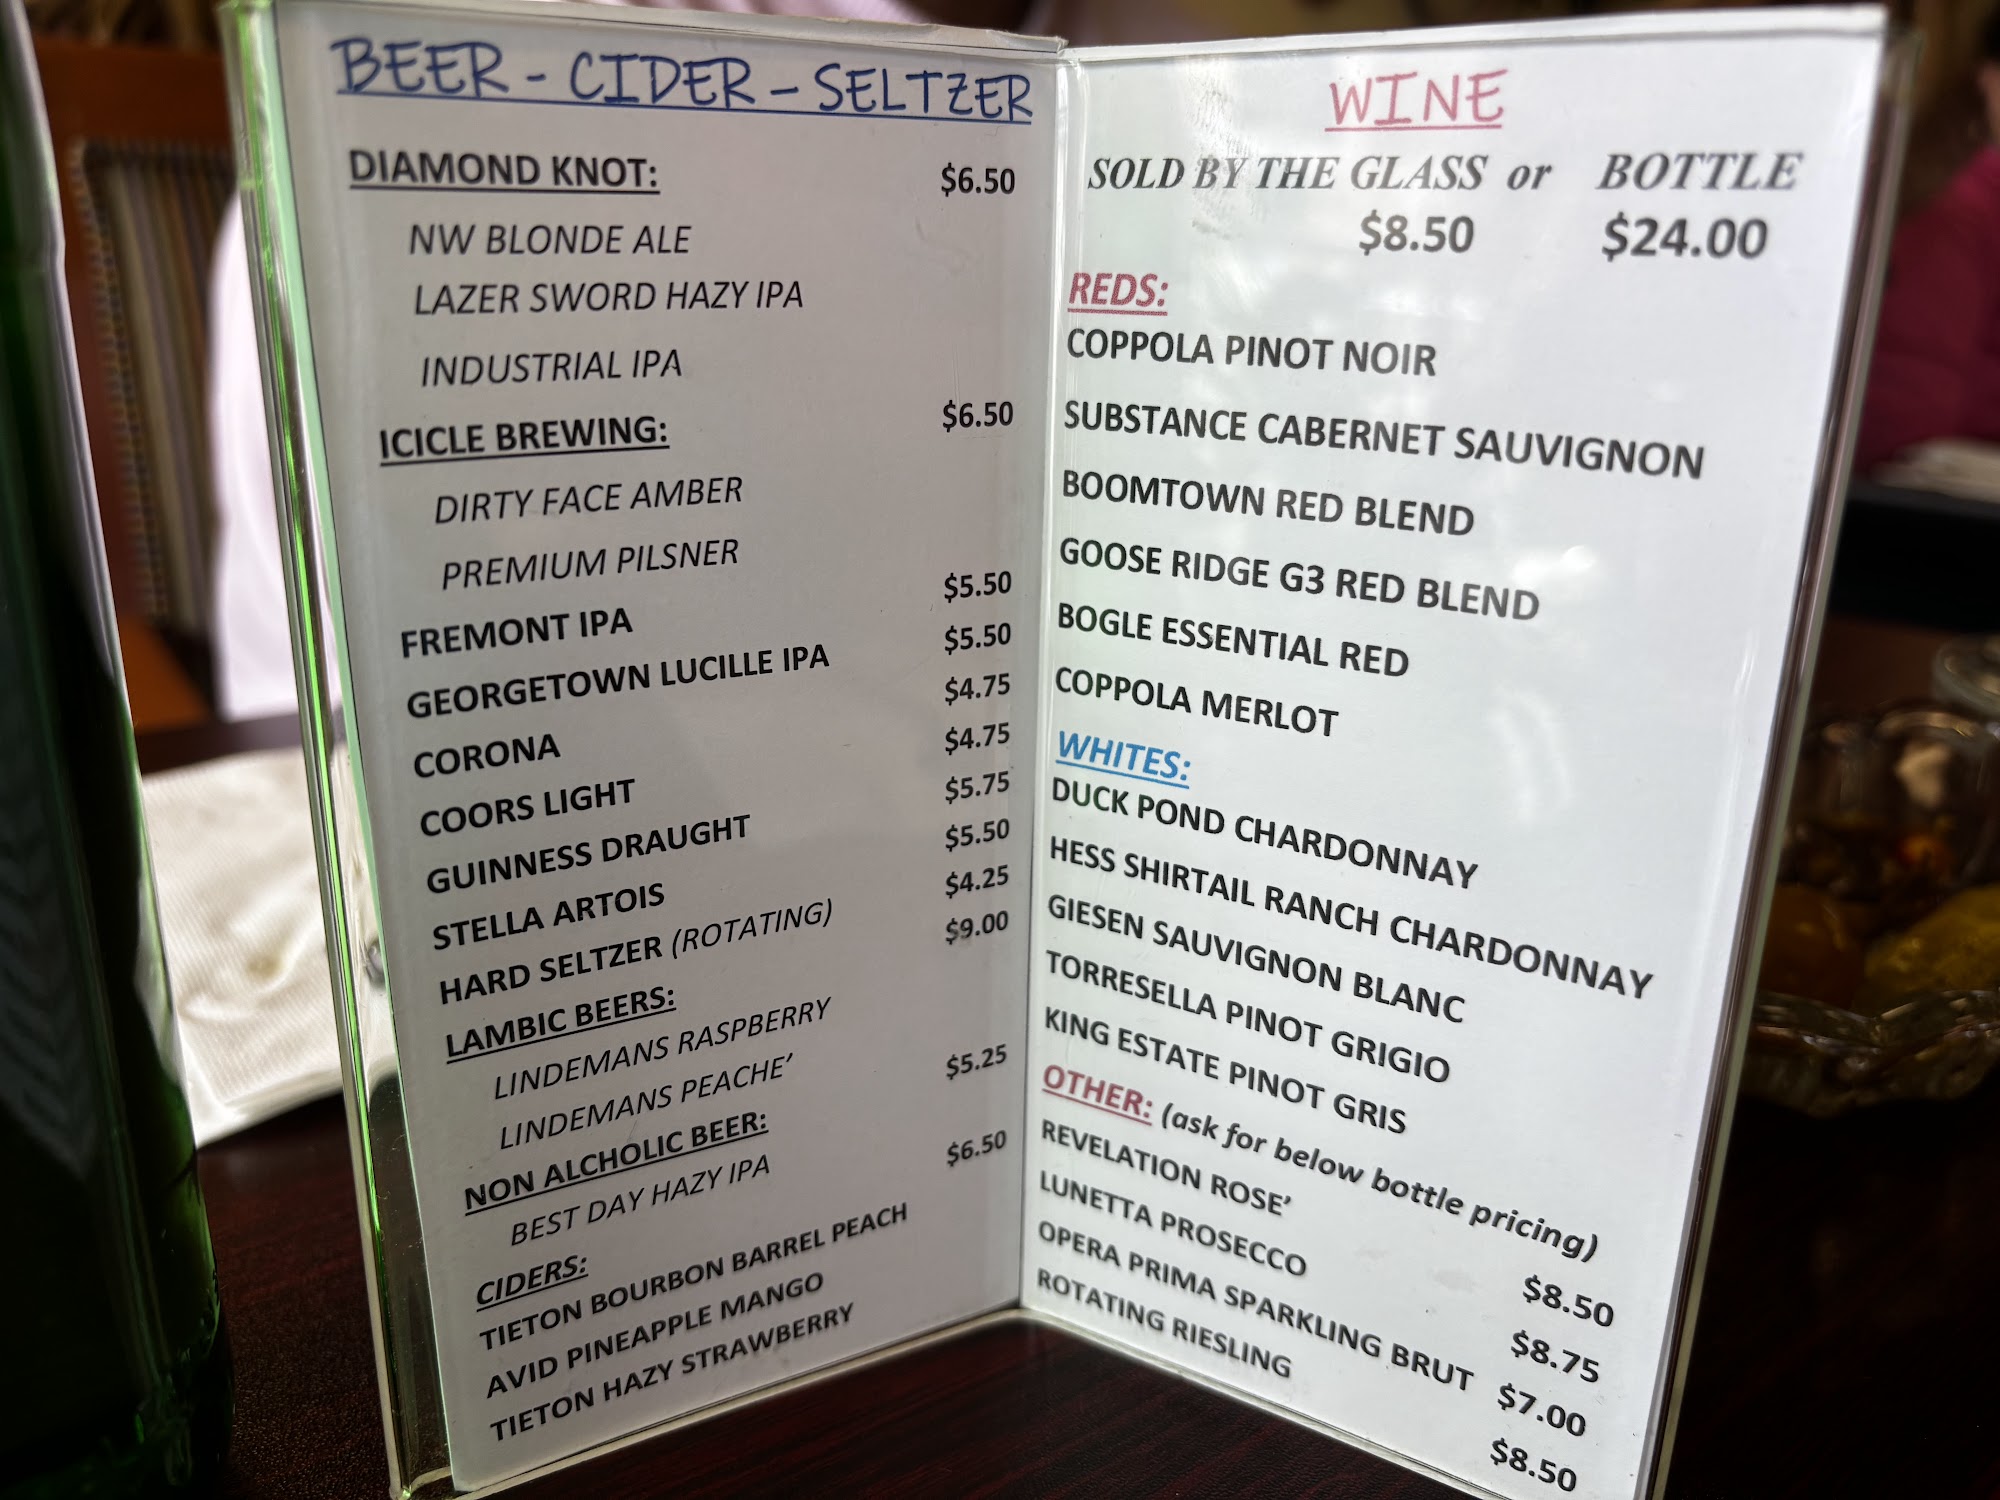 BEER - CIDER - SELTZER
DIAMOND KNOT: $6.50
NW BLONDE ALE
LAZER SWORD HAZY IPA
INDUSTRIAL IPA
ICICLE BREWING: $6.50
DIRTY FACE AMBER
PREMIUM PILSNER
FREMONT IPA $5.50
GEORGETOWN LUCILLE IPA $5.50
CORONA $4.75
COORS LIGHT $4.75
GUINNESS DRAUGHT $5.75
STELLA ARTOIS $5.50
HARD SELTZER (ROTATING) $4.25
LAMBIC BEERS: $9.00
LINDEMANS RASPBERRY
LINDEMANS PEACHE’
NON ALCHOLIC BEER: $5.25
BEST DAY HAZY IPA
CIDERS: $6.50
TIETON BOURBON BARREL PEACH
AVID PINEAPPLE MANGO
TIETON HAZY STRAWBERRY
WINE
SOLD BY THE GLASS or BOTTLE
$8.50 $24.00
REDS:
COPPOLA PINOT NOIR
SUBSTANCE CABERNET SAUVIGNON
BOOMTOWN RED BLEND
GOOSE RIDGE G3 RED BLEND
BOGLE ESSENTIAL RED
COPPOLA MERLOT
WHITES:
DUCK POND CHARDONNAY
HESS SHIRTAIL RANCH CHARDONNAY
GIESEN SAUVIGNON BLANC
TORRESELLA PINOT GRIGIO
KING ESTATE PINOT GRIS
OTHER: (ask for below bottle pricing)
REVELATION ROSE’ $8.50
LUNETTA PROSECCO $8.75
OPERA PRIMA SPARKLING BRUT $7.00
ROTATING RIESLING $8.50